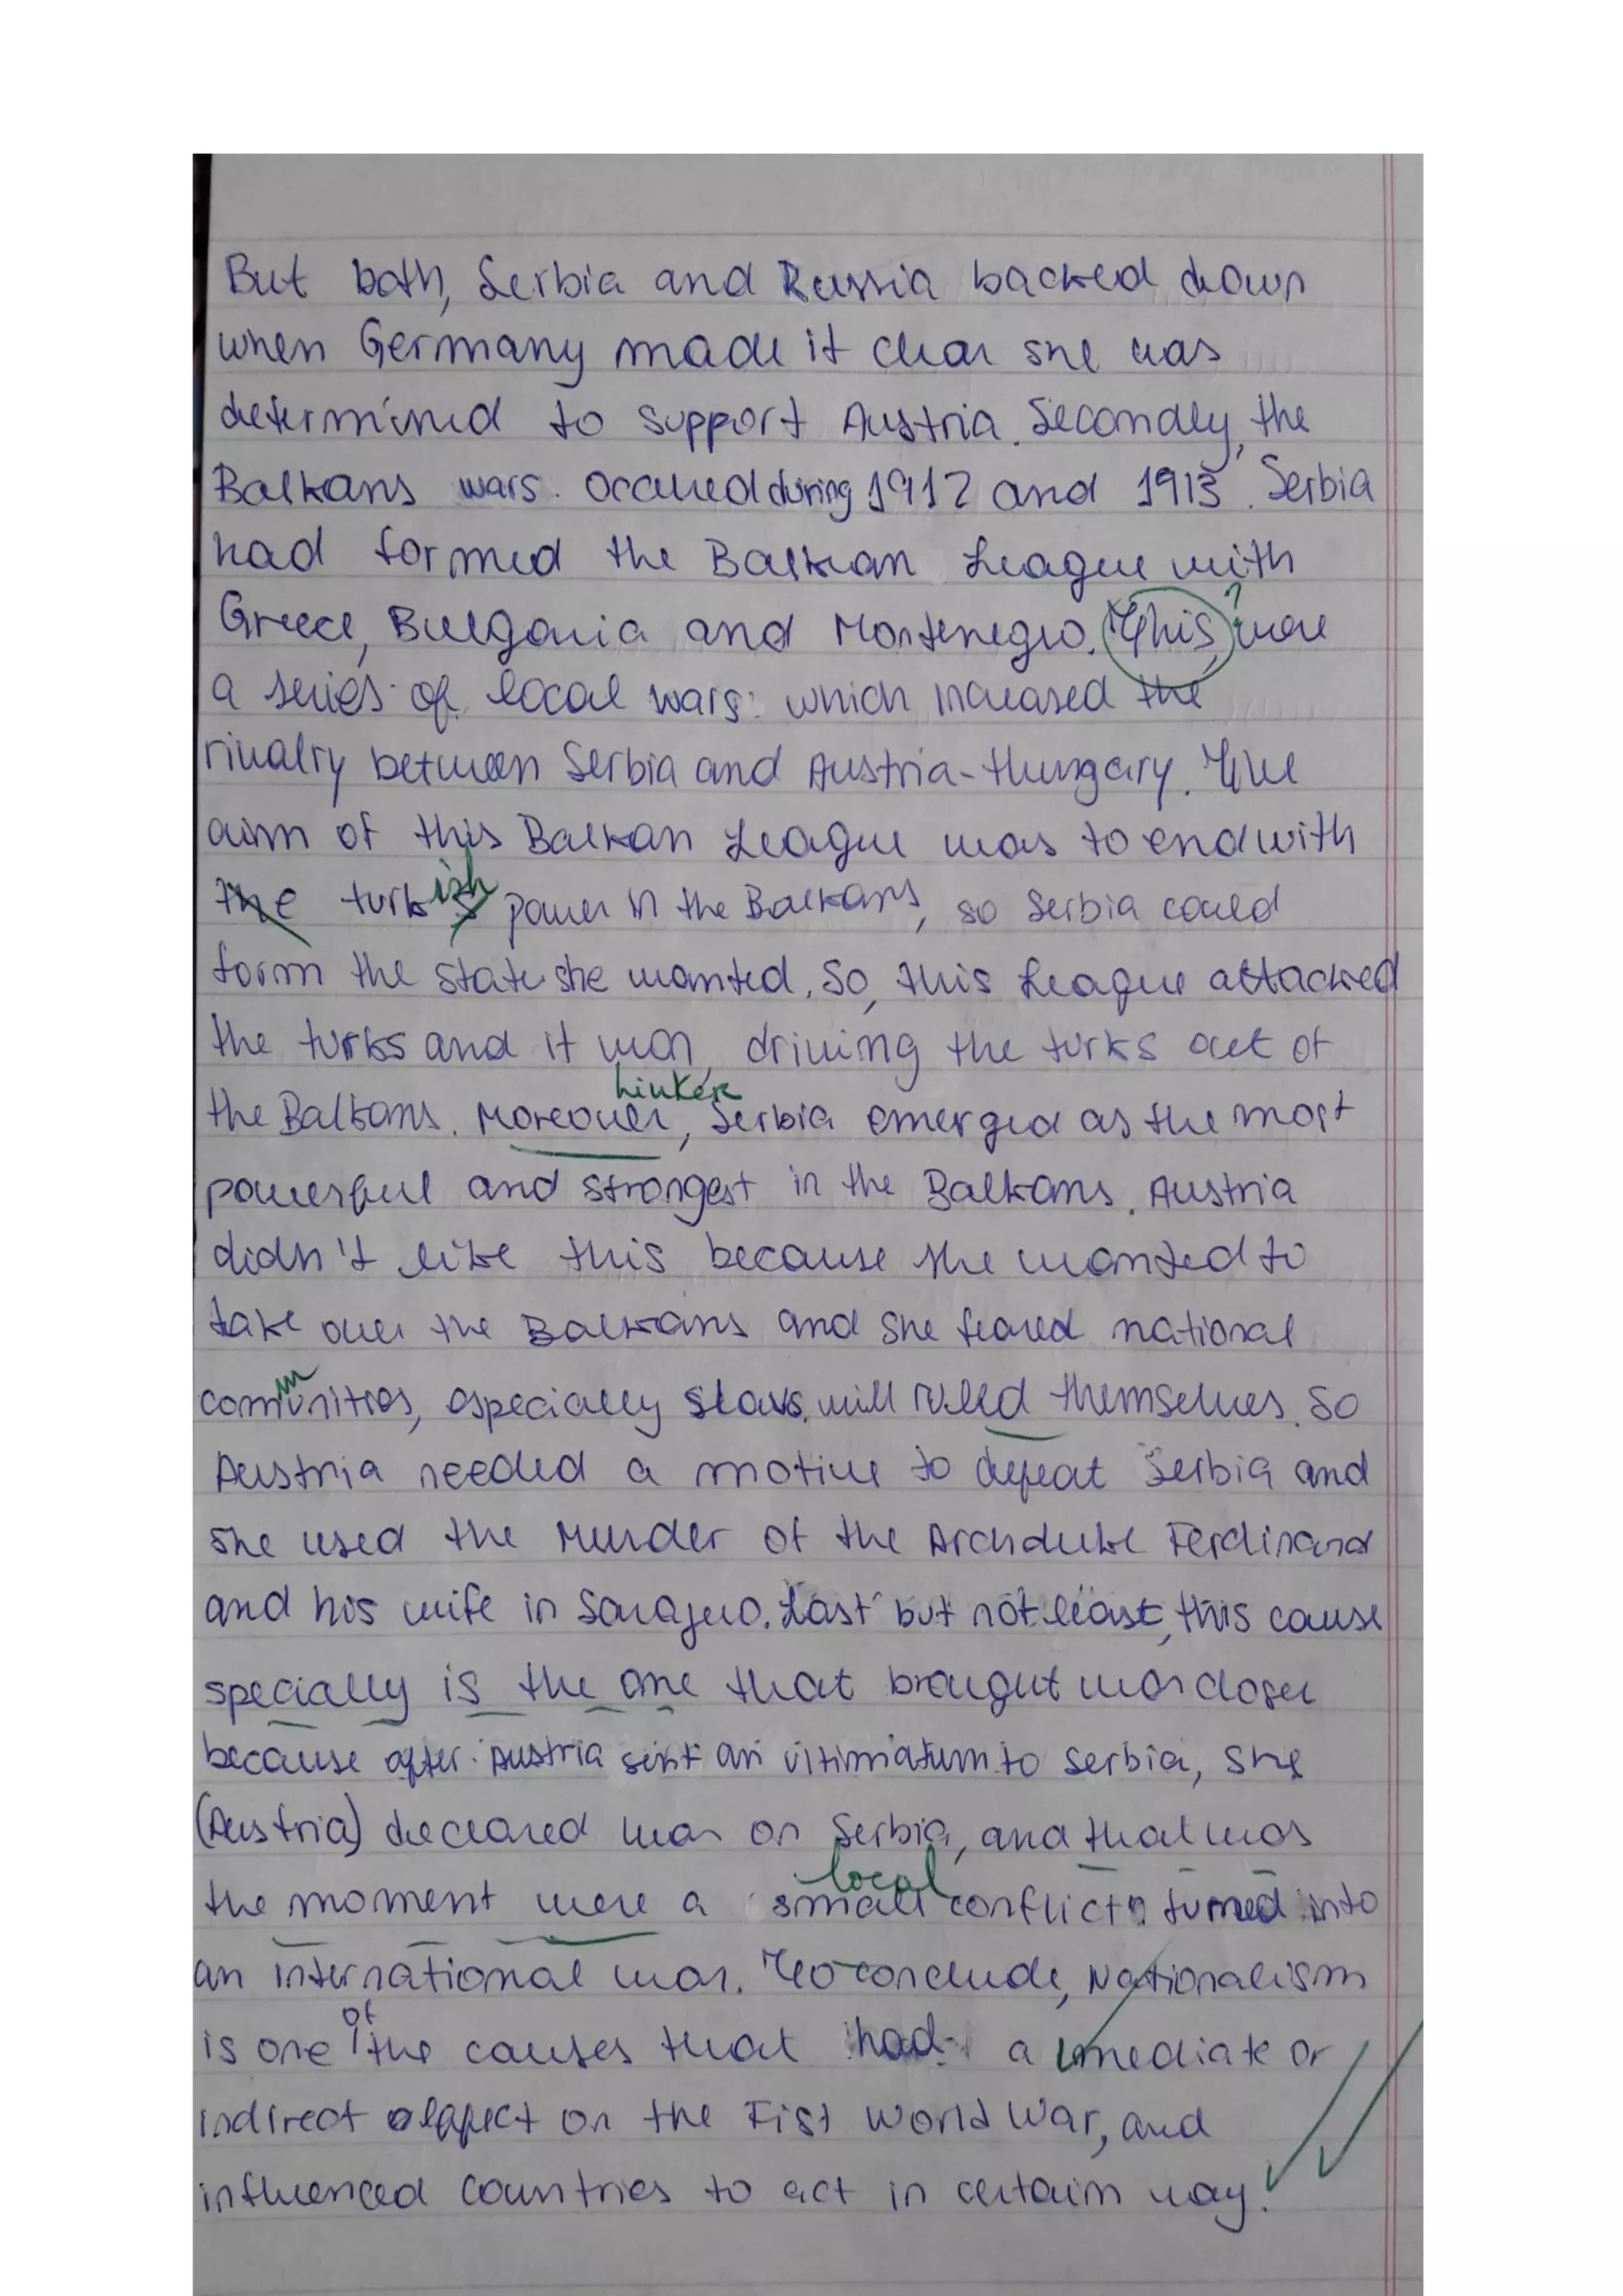 But both, Serbia and Russia backed down
when Germany made it clear she was
determined to support Austria. Secondly, the
Balkans wars. Occured during 1912 and 1913. Serbia
had formed the Balkan League with
Greece, Bulgaria and Montenegro. This, ? were
a series of local wars which increased the
rivalry between Serbia and Austria-Hungary. The
aim of this Balkan League was to end with
the turkish power in the Balkans, so Serbia could
form the state she wanted. So, this League attacked
the turks and it won, driving the turks out of
linker
the Balkans. Moreover, Serbia emerged as the most
powerful and strongest in the Balkans. Austria
didn't like this because she wanted to
take over the Balkans and she feared national
m
comunities, especially slavs, will ruled themselves. So
Austria needed a motive to defeat Serbia and
she used the Murder of the Archduke Ferdinand
and his wife in Sarajevo. Last but not least, this cause
specially is the one that brought war closer
because after Austria sent an ultimatum to Serbia, she
(Austria) declared war on Serbia, and that was
local
the moment were a small conflict turned into
an international war. To conclude, Nationalism
is one of the causes that had a imediate or
indirect effect on the Fist World War, and
influenced countries to act in certain way.